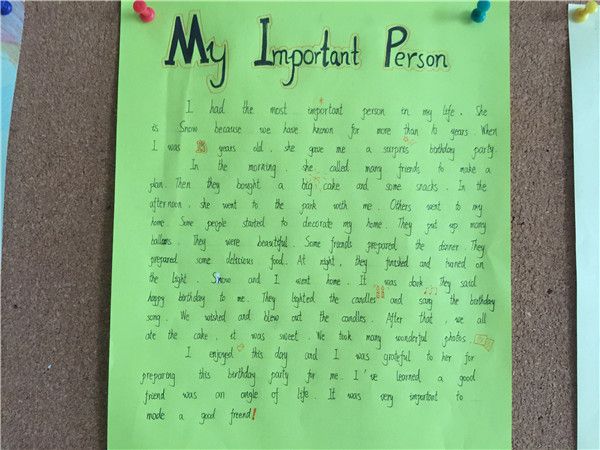 My Important Person
I had the most important person in my life. She
is Snow because we have known for more than 10 years. When
I was 13 years old, she gave me a surpris birthday party.
In the morning, she called many friends to make a
plan. Then they bought a big cake and some snacks. In the
afternoon, she went to the park with me. Others went to my
home. Some people started to decorate my home. They put up many
balloons. They were beautiful. Some friends prepared the dinner. They
prepared some delicious food. At night, they finished and turned on
the light. Snow and I went home. It was dark. They said
happy birthday to me. They lighted the candles and sang the birthday
song. We wished and blew out the candles. After that, we all
ate the cake. it was sweet. We took many wonderful photos.
I enjoyed this day and I was grateful to her for
preparing this birthday party for me. I've learned a good
friend was an angle of life. It was very important to
made a good freend!